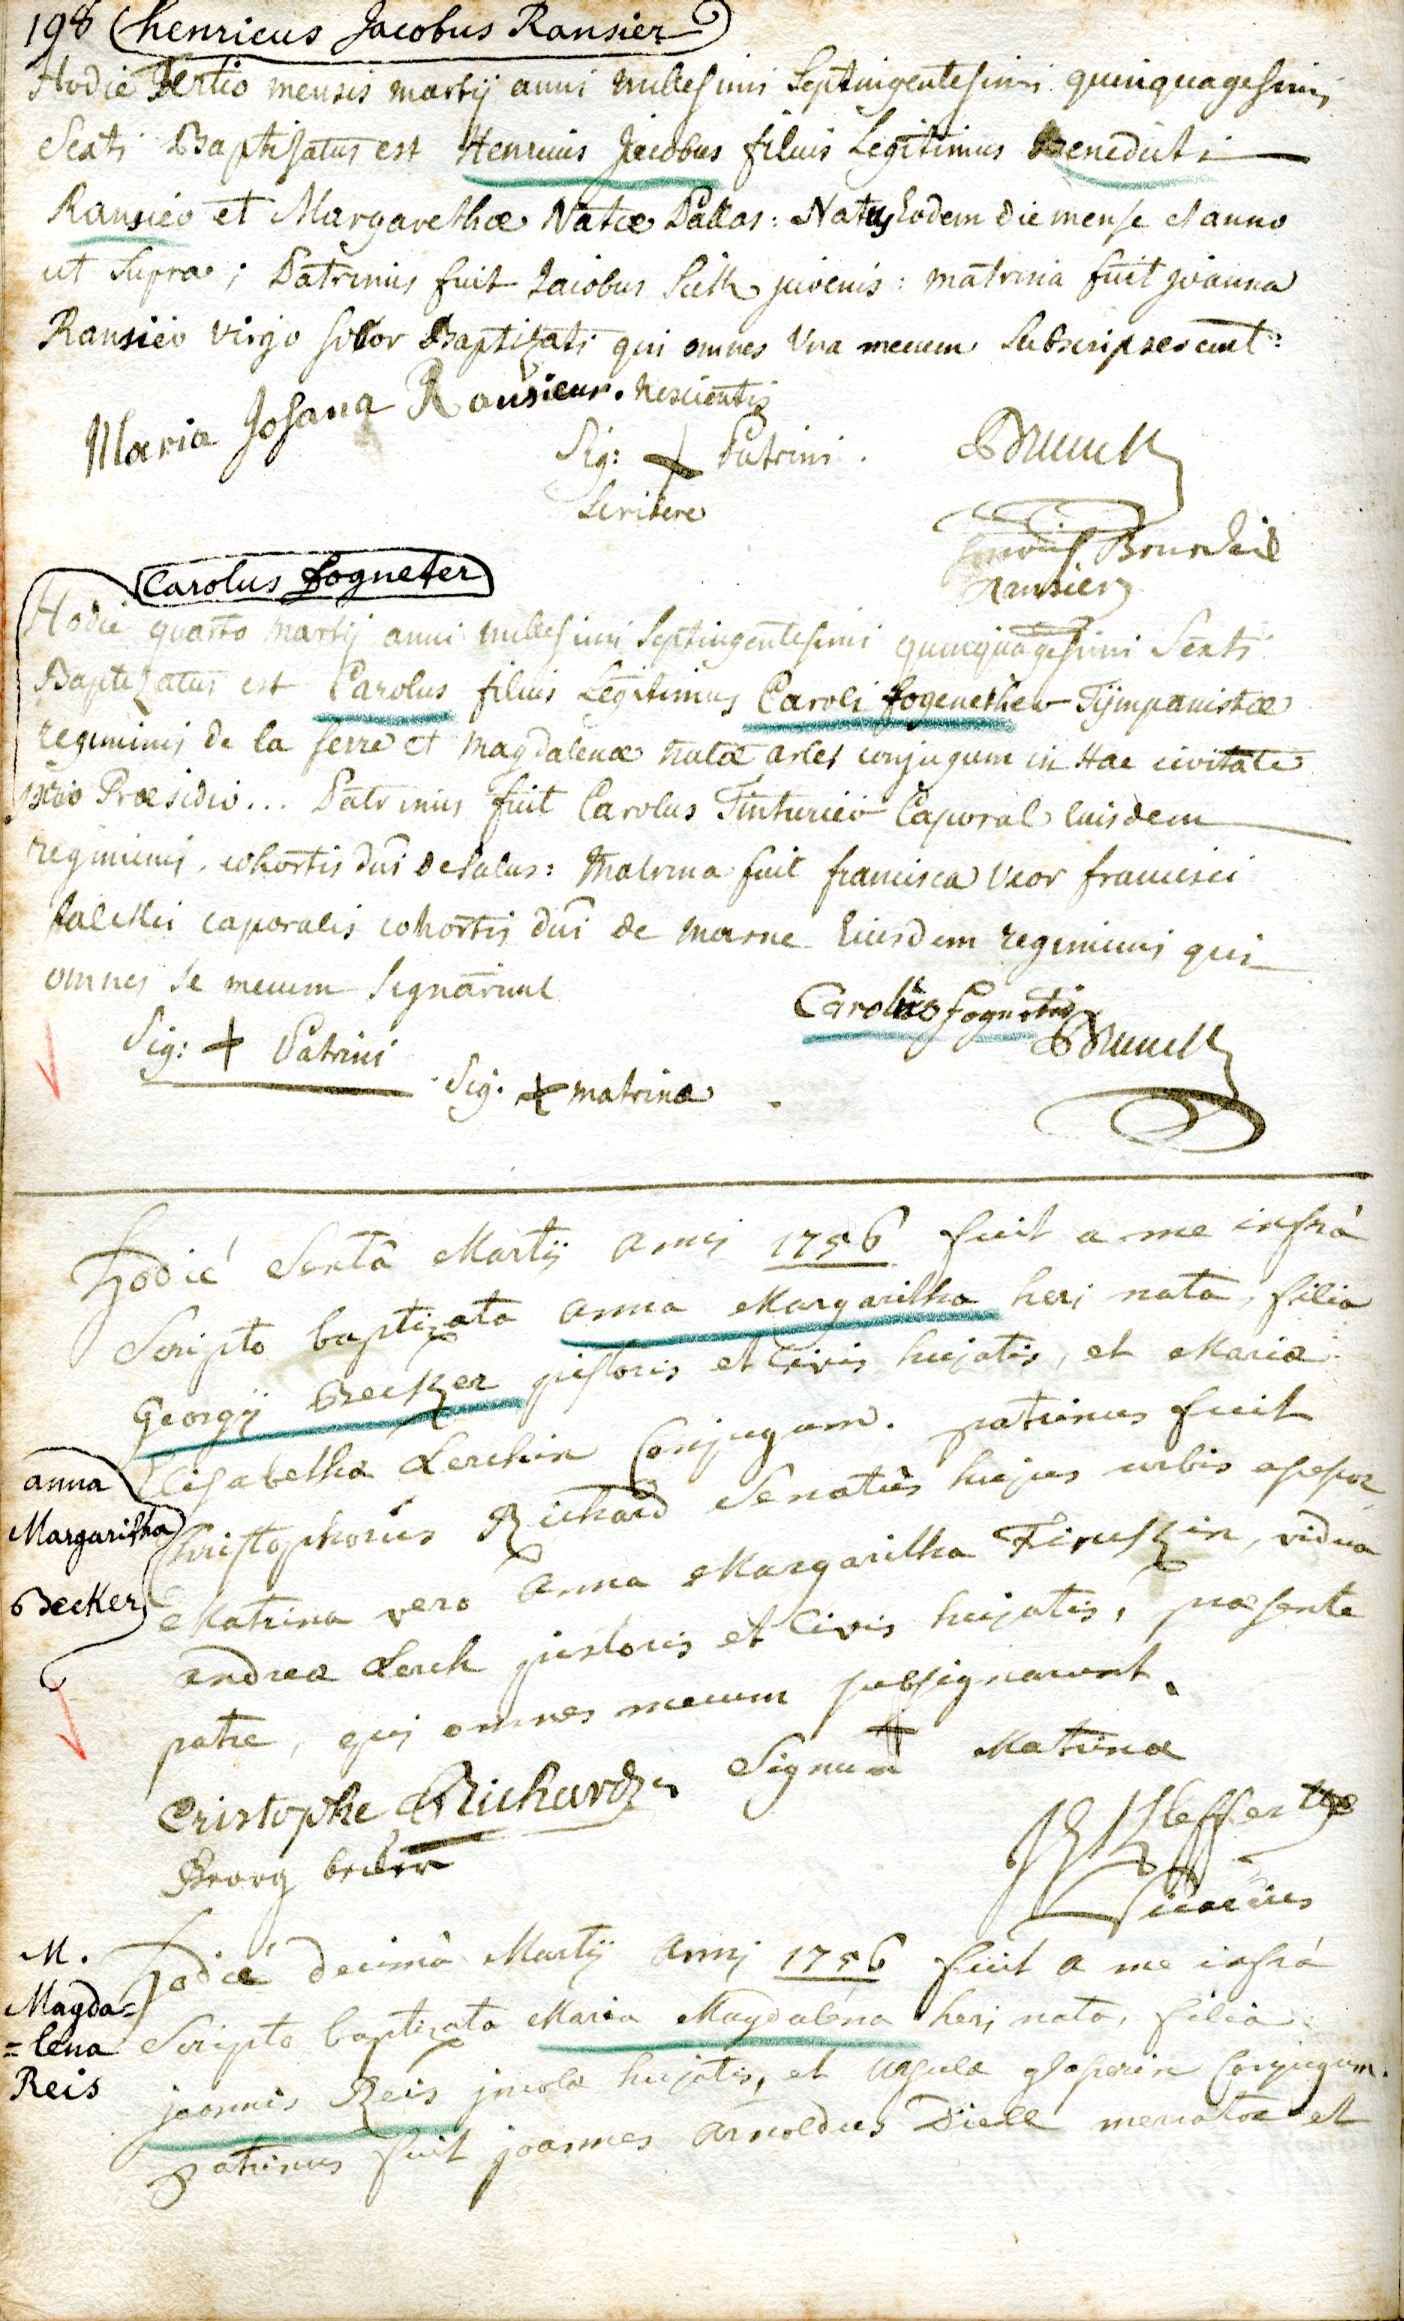 198 Henricus Jacobus Ransier
Hodie Tertio mensis martij anni millesimi Septingentesimi quinquagesimi
Sexti Baptisatus est Henricus Jacobus filius Legitimus Benedicti
Ransier et Margarethæ Natæ Pallas: Natus Eodem die mense et anno
ut Supra; Patrinus fuit Jacobus juvenis: matrina fuit joanna
Ransier virgo soror Baptizati qui omnes Una mecum Subscripserunt:
Maria Josana Ransieur. nescientis
Sig: + Patrini.
Scribere
Ransier
Carolus fogneter
Hodie quarto martij anni millesimi Septingentesimi quinquagesimi Sexti
Baptizatus est Carolus filius Legitimus Caroli fogenether Tÿmpanistæ
regiminis de la ferre et magdalenæ natæ arlet conjugum in Hac civitate
Præsidio... Patrinus fuit Carolus Tinturier Caporal Eiusdem
regiminis. cohortis dni de Salus: Matrina fuit francisca Uxor francisci
falckei caporalis cohortis dni de marne Eiusdem regiminis qui
omnes se mecum Signarunt
Carolus fognetter
Sig: + Patrini
Sig: + matrinæ
Hodie Sexta Martij Anni 1756 fuit a me infrà
Scripto baptizata Anna Margaritha heri nata, filia
Georgij Becker pistoris et Civis hujatis, et Mariæ
Elisabetha Lerchin Conjugum. patrinus fuit
Christophorus Richard Senatûs hujus urbis assessor,
Matrina vero Anna Margaritha, vidua
andreæ Lerch pistoris et Civis hujatis, præsente
patre, qui omnes mecum subsignarunt.
anna
Margaritha
Becker
Signum + Matrinæ
Cristophe Richard
Georg becker
Kleffer
Vicarius
Hodie decimâ Martij Anni 1756 fuit a me infrà
Scripto baptizata Maria Magdalena heri nata, filia
joannis Reis incolæ hujatis, et Ursulæ gloserin Conjugum.
patrinus fuit joannes Arnoldus Diell mercator et
M.
Magda=
=lena
Reis